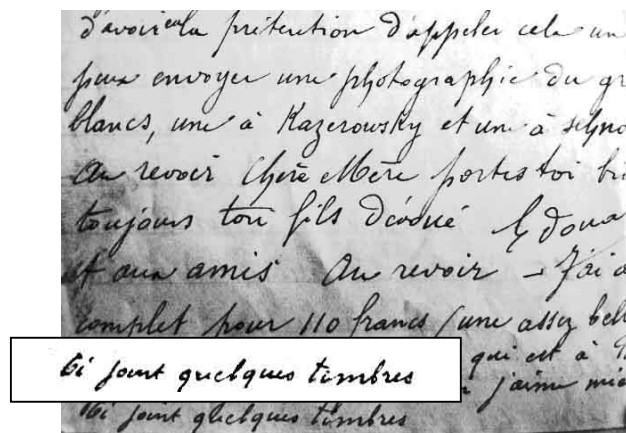 d'avoir eu la prétention d'appeler cela un
peux envoyer une photographie du gr
blancs, une à Kazerowsky et une à
au revoir Chère Mère portes toi bi
toujours ton fils dévoué Edoua
et aux amis Au revoir - J'ai a
complet pour 110 francs (une assez bell
qui est à
j'aime mie
Ci joint quelques timbres
Ci joint quelques timbres